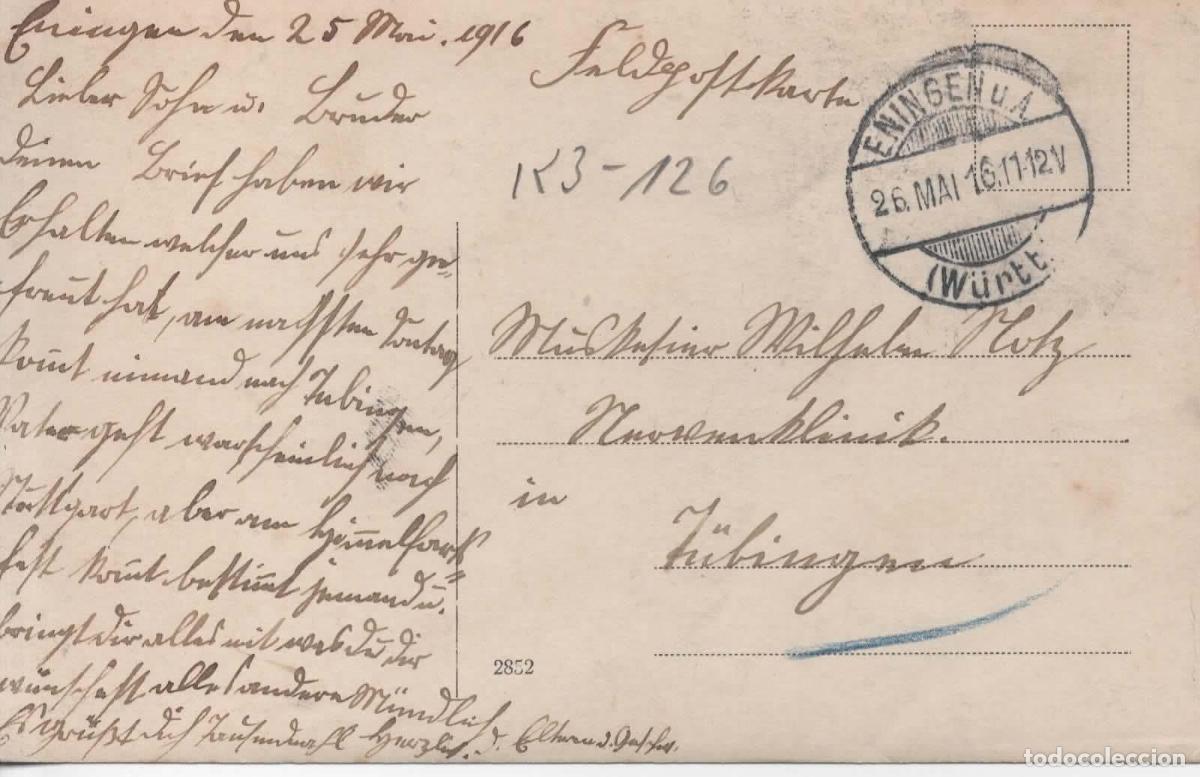 Eningen den 25 Mai. 1916
Lieber Sohn u. Bruder
deinen Brief haben wir
Erhalten welcher uns sehr ge=
freut hat, am nachsten Sontag
komt niemand nach Tübingen,
Vater geht warscheinlich nach
Stuttgart, aber am Himelfart=
fest komt bestimt jemand u.
bringt dir alles mit was du dir
wünschest alles andere Mündlich
Es grüßt dich Tausendmahl Herzlich d. Eltern u. Geschw.
Feldpostkarte
K3-126
ENINGEN u. A.
26. MAI 16. 11-12 V
(Württ.
Musketier Wilhelm Notz
Nervenklinik.
in
Tübingen
2852
todocoleccion